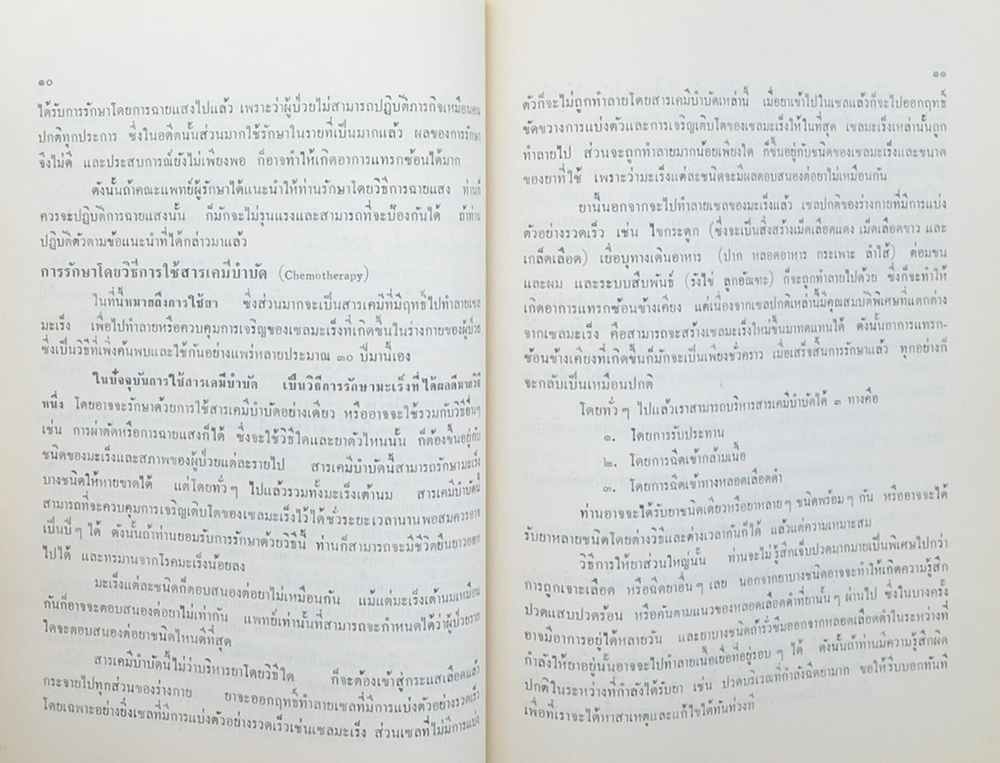 ๑๐
ได้รับการรักษาโดยการฉายแสงไปแล้ว เพราะว่าผู้ป่วยไม่สามารถปฏิบัติภารกิจเหมือนคน
ปกติทุกประการ ซึ่งในอดีตนั้นส่วนมากใช้รักษาในรายที่เป็นมากแล้ว ผลของการรักษา
จึงไม่ดี และประสบการณ์ยังไม่เพียงพอ ก็อาจทำให้เกิดอาการแทรกซ้อนได้มาก
ดังนั้นถ้าคณะแพทย์ผู้รักษาได้แนะนำให้ท่านรักษาโดยวิธีการฉายแสง ท่านก็
ควรจะปฏิบัติการฉายแสงนั้น ก็มักจะไม่รุนแรงและสามารถที่จะป้องกันได้ ถ้าท่าน
ปฏิบัติตัวตามข้อแนะนำที่ได้กล่าวมาแล้ว
การรักษาโดยวิธีการใช้สารเคมีบำบัด (Chemotherapy)
ในที่นี้หมายถึงการใช้ยา ซึ่งส่วนมากจะเป็นสารเคมีที่มีฤทธิ์ไปทำลายเซล
มะเร็ง เพื่อไปทำลายหรือควบคุมการเจริญของเซลมะเร็งที่เกิดขึ้นในร่างกายของผู้ป่วย
ซึ่งเป็นวิธีที่เพิ่งค้นพบและใช้กันอย่างแพร่หลายประมาณ ๓๐ ปีมานี้เอง
ในปัจจุบันการใช้สารเคมีบำบัด เป็นวิธีการรักษามะเร็งที่ได้ผลดีมากวิธี
หนึ่ง โดยอาจจะรักษาด้วยการใช้สารเคมีบำบัดอย่างเดียว หรืออาจจะใช้รวมกับวิธีอื่นๆ
เช่น การผ่าตัดหรือการฉายแสงก็ได้ ซึ่งจะใช้วิธีใดและยาตัวไหนนั้น ก็ต้องขึ้นอยู่กับ
ชนิดของมะเร็งและสภาพของผู้ป่วยแต่ละรายไป สารเคมีบำบัดนี้สามารถรักษามะเร็ง
บางชนิดให้หายขาดได้ แต่โดยทั่วๆ ไปแล้วรวมทั้งมะเร็งเต้านม สารเคมีบำบัดนี้
สามารถที่จะควบคุมการเจริญเติบโตของเซลมะเร็งไว้ได้ชั่วระยะเวลานานพอสมควรอาจ
เป็นปีๆ ได้ ดังนั้นถ้าท่านยอมรับการรักษาด้วยวิธีนี้ ท่านก็สามารถจะมีชีวิตยืนยาวออก
ไปได้ และทรมานจากโรคมะเร็งน้อยลง
มะเร็งแต่ละชนิดก็ตอบสนองต่อยาไม่เหมือนกัน แม้แต่มะเร็งเต้านมเหมือน
กันก็อาจจะตอบสนองต่อยาไม่เท่ากัน แพทย์เท่านั้นที่สามารถจะกำหนดได้ว่าผู้ป่วยราย
ใดจะตอบสนองต่อยาชนิดไหนดีที่สุด
สารเคมีบำบัดนี้ไม่ว่าบริหารยาโดยวิธีใด ก็จะต้องเข้าสู่กระแสเลือดแล้ว
กระจายไปทุกส่วนของร่างกาย ยาจะออกฤทธิ์ทำลายเซลที่มีการแบ่งตัวอย่างรวดเร็ว
โดยเฉพาะอย่างยิ่งเซลที่มีการแบ่งตัวอย่างรวดเร็วเช่นเซลมะเร็ง ส่วนเซลที่ไม่มีการแบ่ง
๑๑
ตัวก็จะไม่ถูกทำลายโดยสารเคมีบำบัดเหล่านี้ เมื่อยาเข้าไปในเซลแล้วก็จะไปออกฤทธิ์
ขัดขวางการแบ่งตัวและการเจริญเติบโตของเซลมะเร็งให้ในที่สุด เซลมะเร็งเหล่านั้นถูก
ทำลายไป ส่วนจะถูกทำลายมากน้อยเพียงใด ก็ขึ้นอยู่กับชนิดของเซลมะเร็งและขนาด
ของยาที่ใช้ เพราะว่ามะเร็งแต่ละชนิดจะมีผลตอบสนองต่อยาไม่เหมือนกัน
ยานี้นอกจากจะไปทำลายเซลของมะเร็งแล้ว เซลปกติของร่างกายที่มีการแบ่ง
ตัวอย่างรวดเร็ว เช่น ไขกระดูก (ซึ่งจะเป็นสิ่งสร้างเม็ดเลือดแดง เม็ดเลือดขาว และ
เกล็ดเลือด) เยื่อบุทางเดินอาหาร (ปาก หลอดอาหาร กระเพาะ ลำไส้) ต่อมขน
และผม และระบบสืบพันธ์ (รังไข่ ลูกอัณฑะ) ก็จะถูกทำลายไปด้วย ซึ่งก็จะทำให้
เกิดอาการแทรกซ้อนข้างเคียง แต่เนื่องจากเซลปกติเหล่านี้มีคุณสมบัติพิเศษที่แตกต่าง
จากเซลมะเร็ง คือสามารถจะสร้างเซลมะเร็งใหม่ขึ้นมาทดแทนได้ ดังนั้นอาการแทรก-
ซ้อนข้างเคียงที่เกิดขึ้นก็มักจะเป็นเพียงชั่วคราว เมื่อเสร็จสิ้นการรักษาแล้ว ทุกอย่างก็
จะกลับเป็นเหมือนปกติ
โดยทั่วๆ ไปแล้วเราสามารถบริหารสารเคมีบำบัดได้ ๓ ทางคือ
๑. โดยการรับประทาน
๒. โดยการฉีดเข้ากล้ามเนื้อ
๓. โดยการฉีดเข้าทางหลอดเลือดดำ
ท่านอาจจะได้รับยาชนิดเดียวหรือยาหลายๆ ชนิดพร้อมๆ กัน หรืออาจจะได้
รับยาหลายชนิดโดยต่างวิธีและต่างเวลากันก็ได้ แล้วแต่ความเหมาะสม
วิธีการให้ยาส่วนใหญ่นั้น ท่านจะไม่รู้สึกเจ็บปวดมากมายเป็นพิเศษไปกว่า
การถูกเจาะเลือด หรือฉีดยาอื่นๆ เลย นอกจากยาบางชนิดอาจจะทำให้เกิดความรู้สึก
ปวดแสบปวดร้อน หรือคันตามแนวของหลอดเลือดดำที่ยานั้นๆ ผ่านไป ซึ่งในบางครั้ง
อาจมีอาการอยู่ได้หลายวัน และยาบางชนิดถ้ารั่วซึมออกจากหลอดเลือดดำในระหว่างที่
กำลังให้ยาอยู่นั้นอาจจะไปทำลายเนื้อเยื่อที่อยู่รอบๆ ได้ ดังนั้นถ้าท่านมีความรู้สึกผิด
ปกติในระหว่างที่กำลังได้รับยา เช่น ปวดบริเวณที่กำลังฉีดยามาก ขอให้รีบบอกทันที
เพื่อที่เราจะได้หาสาเหตุและแก้ไขได้ทันท่วงที